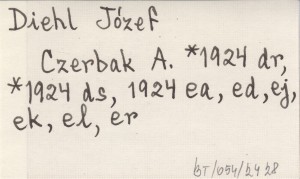 Diehl József
Czerbak A. *1924 dr,
*1924 ds, 1924 ea, ed, ej,
ek, el, er
BT/054/24 28